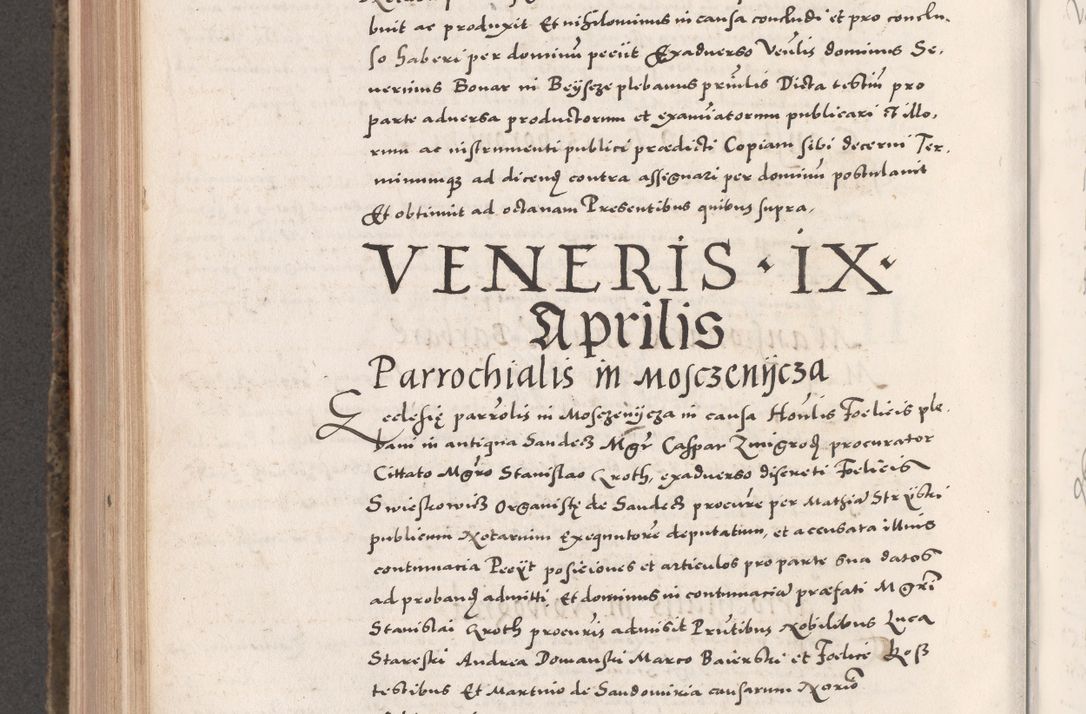 buit ac produxit Et nihilominus in causa concludi et pro conclu-
so haberi per dominū peciit Exadverso Venlis dominus Se-
verinus Bonar in Beÿscze plebanus prīnlis Dicta testiū pro
parte adversa productorum et examinatorum publicari et illo-
rum ac instrumenti publici prædicti Copiam sibi decerni Ter-
minumqꝫ ad dicend contra assignari per dominū postulavit
Et obtinuit ad octavam Presentibus quibus supra,
VENERIS · IX ·
Aprilis
Parrochialis in Mosczenÿcza
Ecclesię parrolis in Mosczenÿcza in causa Honlis Foelicis ple-
bani in antiqua Sandecz Mgr Caspar Zmigrod procurator
Cittato Mgro Stanislao Groth, exadverso discreti Foelicis
Swieskowicz Organistę de Sandecz procure per Mathiā Strÿski
publicum Notarium Exequutore deputatum, et accusata illius
contumacia Peeÿt posiciones et articulos pro parte sua datos
ad proband admitti Et dominus in contumaciā præfati Mgri
Stanislai Groth procuris admisit Prntibus Nobilibus Luca
Stareski Andrea Domanski Marco Baierski et Foelice Ros
testibus Et Martino de Sandomiria causarum Norio